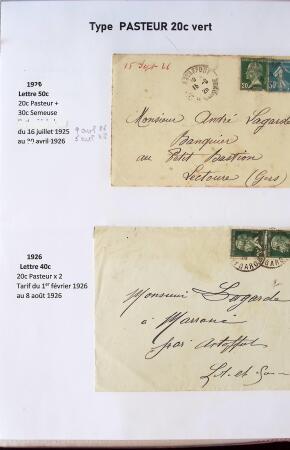 Type PASTEUR 20c vert
1926
Lettre 50c
20c Pasteur +
30c Semeuse
du 16 juillet 1925
au avril 1926
15 Sept 26
20
Monsieur André Lagarde
Banquier
au Petit Bastion
Lectoure (Gers)
1926
Lettre 40c
20c Pasteur x 2
Tarif du 1er février 1926
au 8 août 1926
Monsieur Lagarde
à
par Astaffort
Lot et